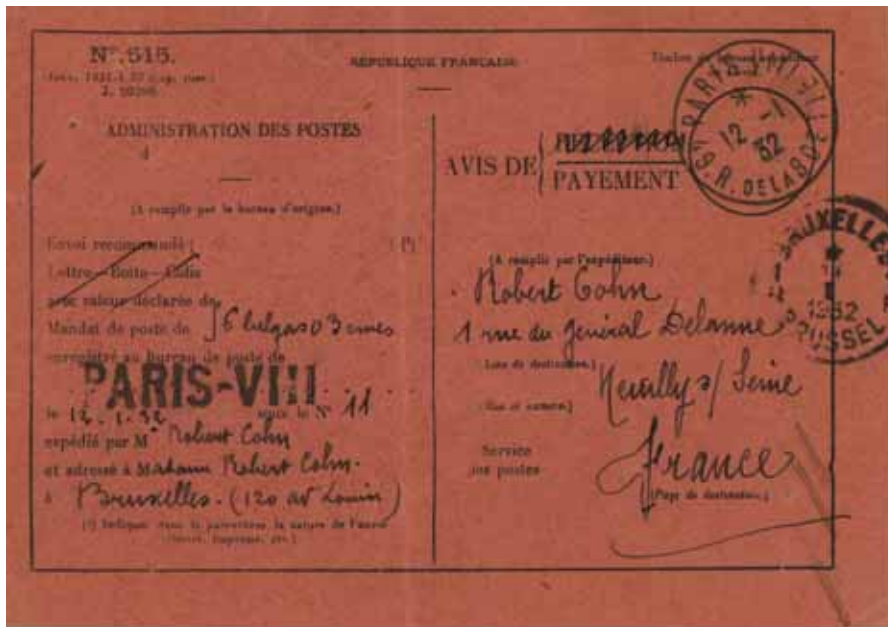 N° 515.
RÉPUBLIQUE FRANÇAISE
ADMINISTRATION DES POSTES
(A remplir par le bureau d'origine.)
Envoi recommandé
Lettre—Boîte—
avec valeur déclarée de
Mandat de poste de 6 belgas 03 cmes
enregistré au bureau de poste de
PARIS-VIII
le 12.1.32 sous le N° 11
expédié par M Robert Cohn
et adressé à Madame Robert Cohn.
à Bruxelles. (120 av Louise)
(1) Indiquer dans la parenthèse la nature de l'envoi
AVIS DE
PAYEMENT
PARIS VIII
12 -1
32
R. DE LA BOÉTIE
BRUXELLES
1932
BRUSSEL
(A remplir par l'expéditeur.)
Robert Cohn
1 rue du Général Delanne
(Lieu de destination.)
Neuilly s/ Seine
(Rue et numéro.)
Service
des postes
France
(Pays de destination.)